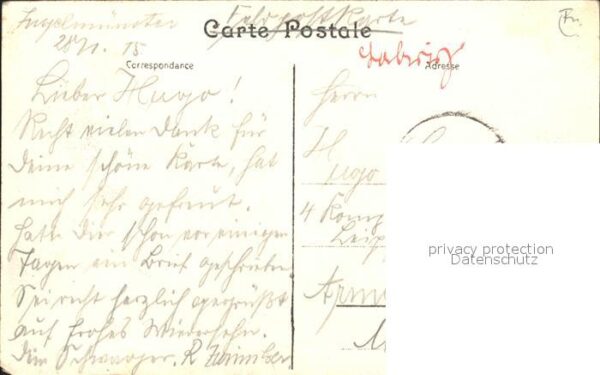 Ingelmünster
Feldpostkarte
28/1. 15
Carte Postale
Correspondance
Adresse
Lieber Hugo!
Recht vielen Dank für
Deine schöne Karte, hat
mich sehr gefreut.
Hatte Dir schon vor einigen
Tagen ein Brief geschrieben
Sei recht herzlich gegrüßt
auf frohes Wiedersehn.
Dein Schwager. R.
Herrn
H
Hugo
4 Komp
Leip
Arm
privacy protection
Datenschutz